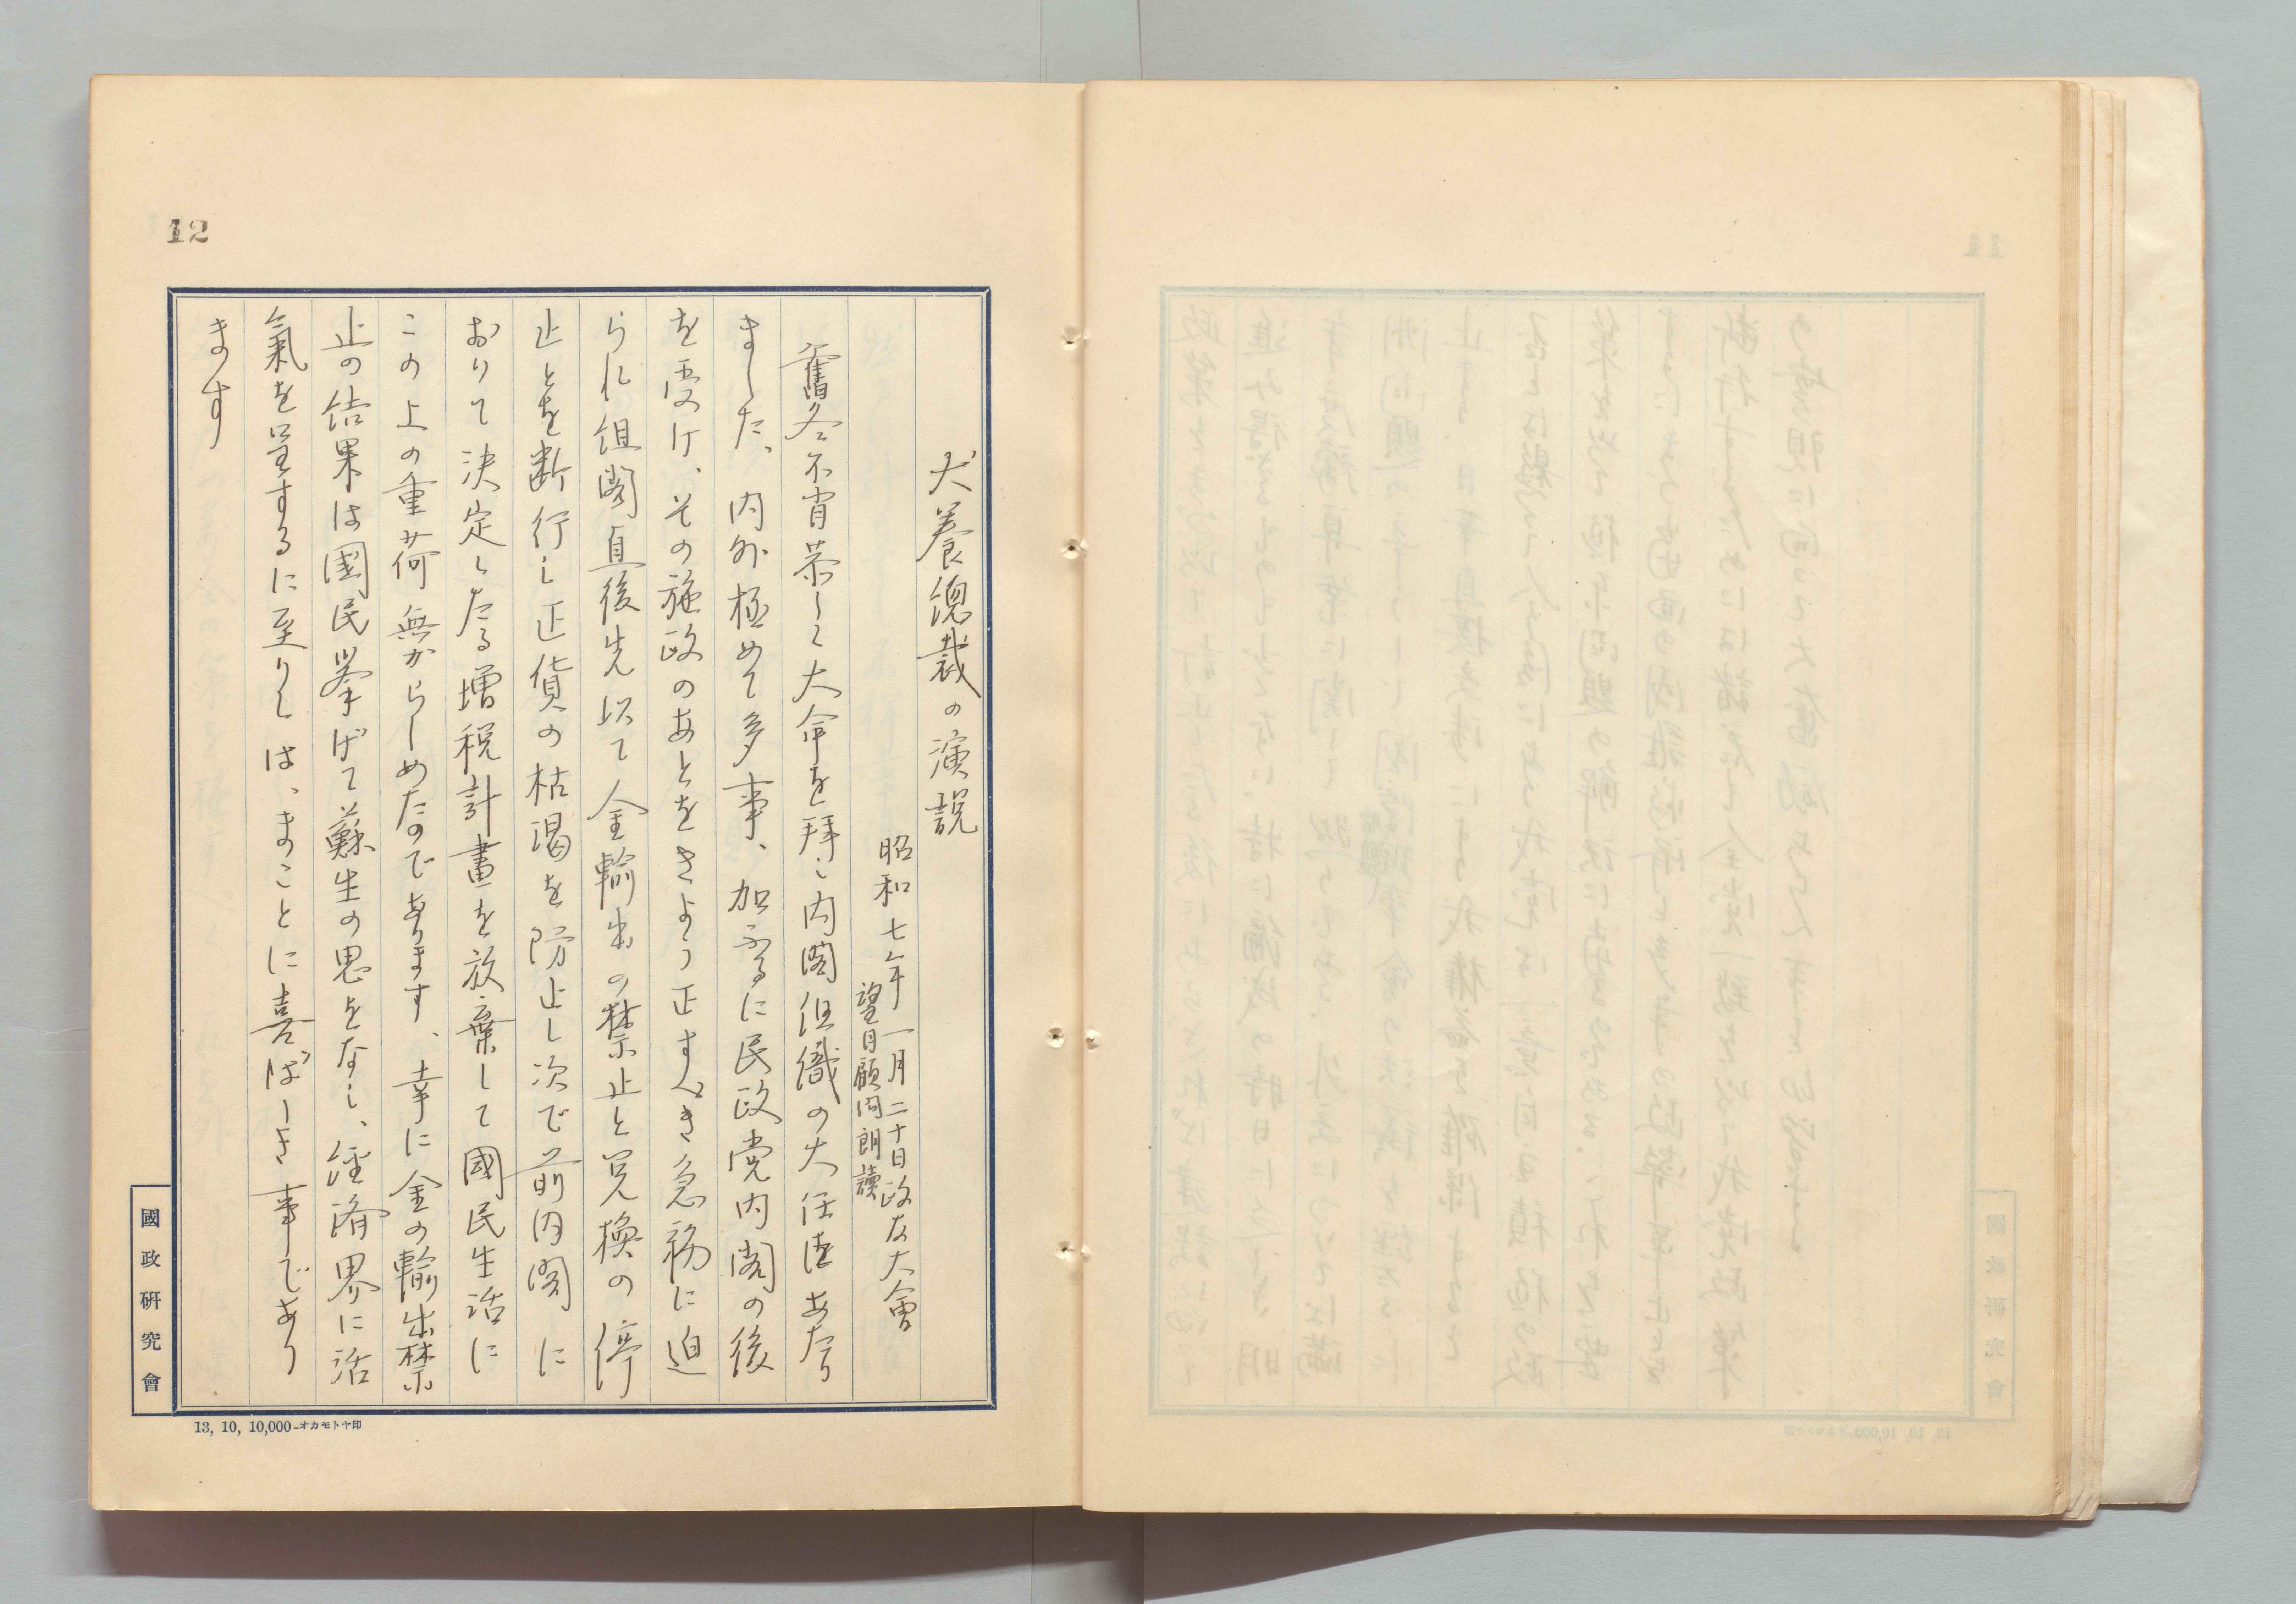 12
犬養總裁の演説
昭和七年一月二十日政友大會
望月顧問朗讀
舊冬不肖恭しく大命を拝し内閣組織の大任達あたり
ました、内外極めて多事、加ふるに民政党内閣の後
を受け、その施政のあとをきよう正すべき急務に迫
られ組閣直後先以て金輸出の禁止と兌換の停
止とを断行し正貨の枯渇を防止し次で前内閣に
おりて決定したる増税計畫を放棄して國民生活に
この上の重荷無からしめたのであります、幸に金の輸出禁
止の結果は國民挙げて蘇生の思をなし、経済界に活
氣を呈するに至りしは、まことに喜ばしき事であり
ます
國政研究會
13, 10, 10,000-オカモトヤ印